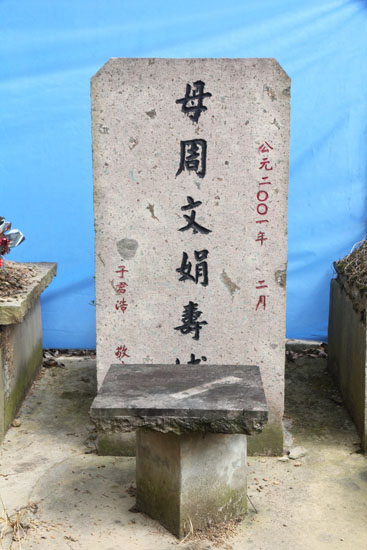 公元二〇〇一年 二月
母周文娟壽
子君浩 敬